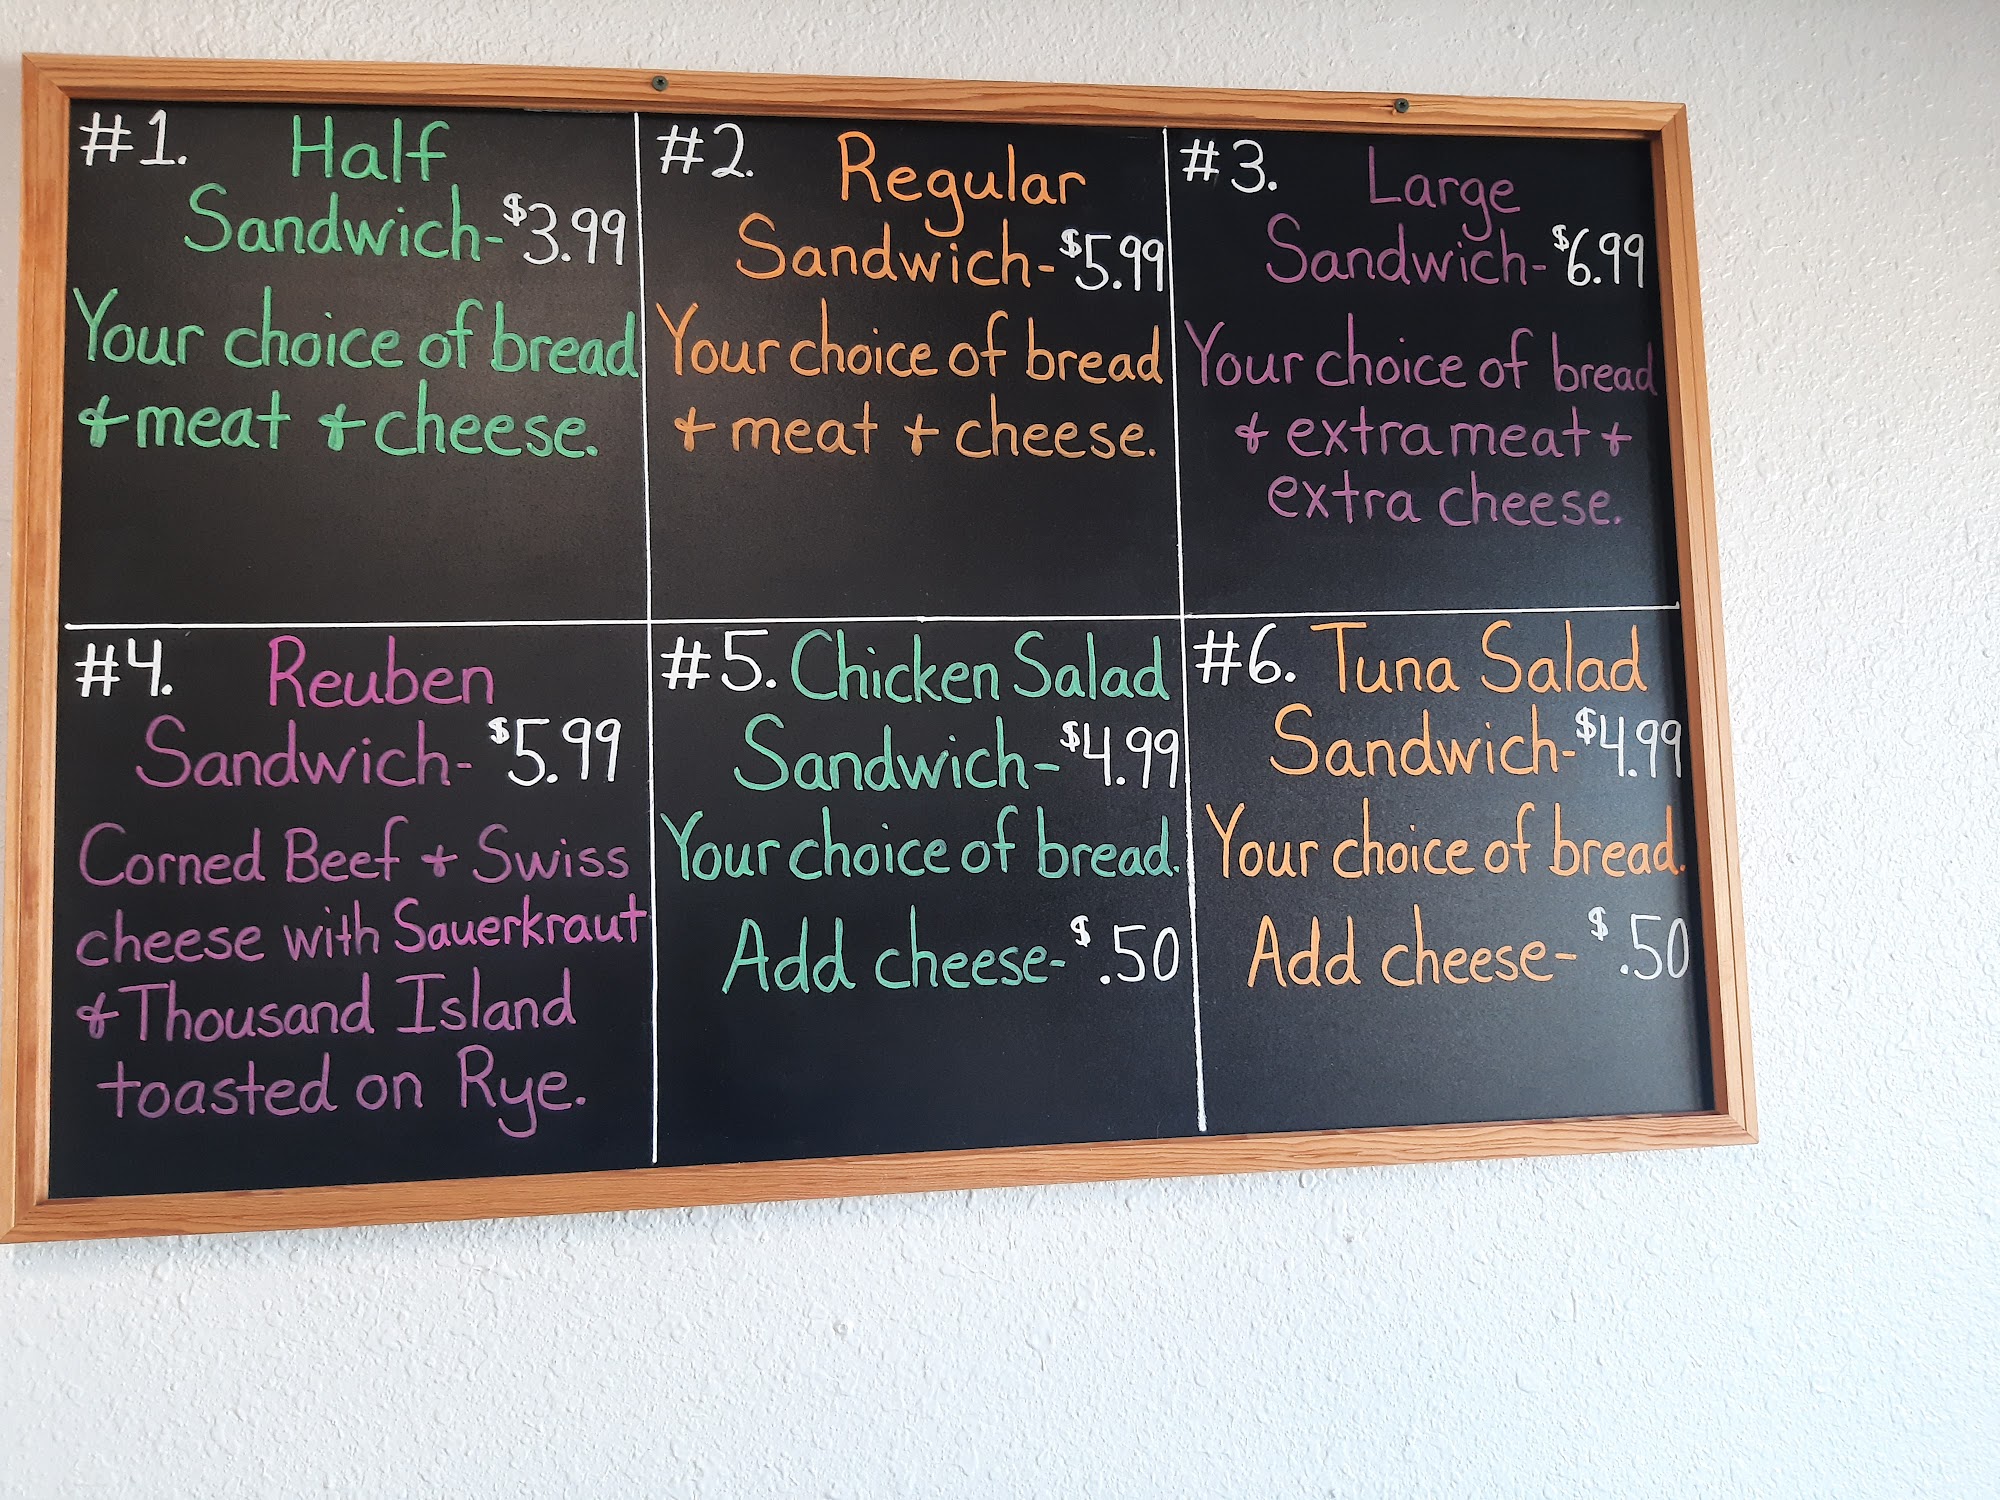 #1. Half
Sandwich-$3.99
Your choice of bread
& meat & cheese.
#2. Regular
Sandwich-$5.99
Your choice of bread
& meat & cheese.
#3. Large
Sandwich-$6.99
Your choice of bread
& extra meat &
extra cheese.
#4. Reuben
Sandwich-$5.99
Corned Beef & Swiss
cheese with Sauerkraut
& Thousand Island
toasted on Rye.
#5. Chicken Salad
Sandwich-$4.99
Your choice of bread.
Add cheese-$.50
#6. Tuna Salad
Sandwich-$4.99
Your choice of bread.
Add cheese-$.50